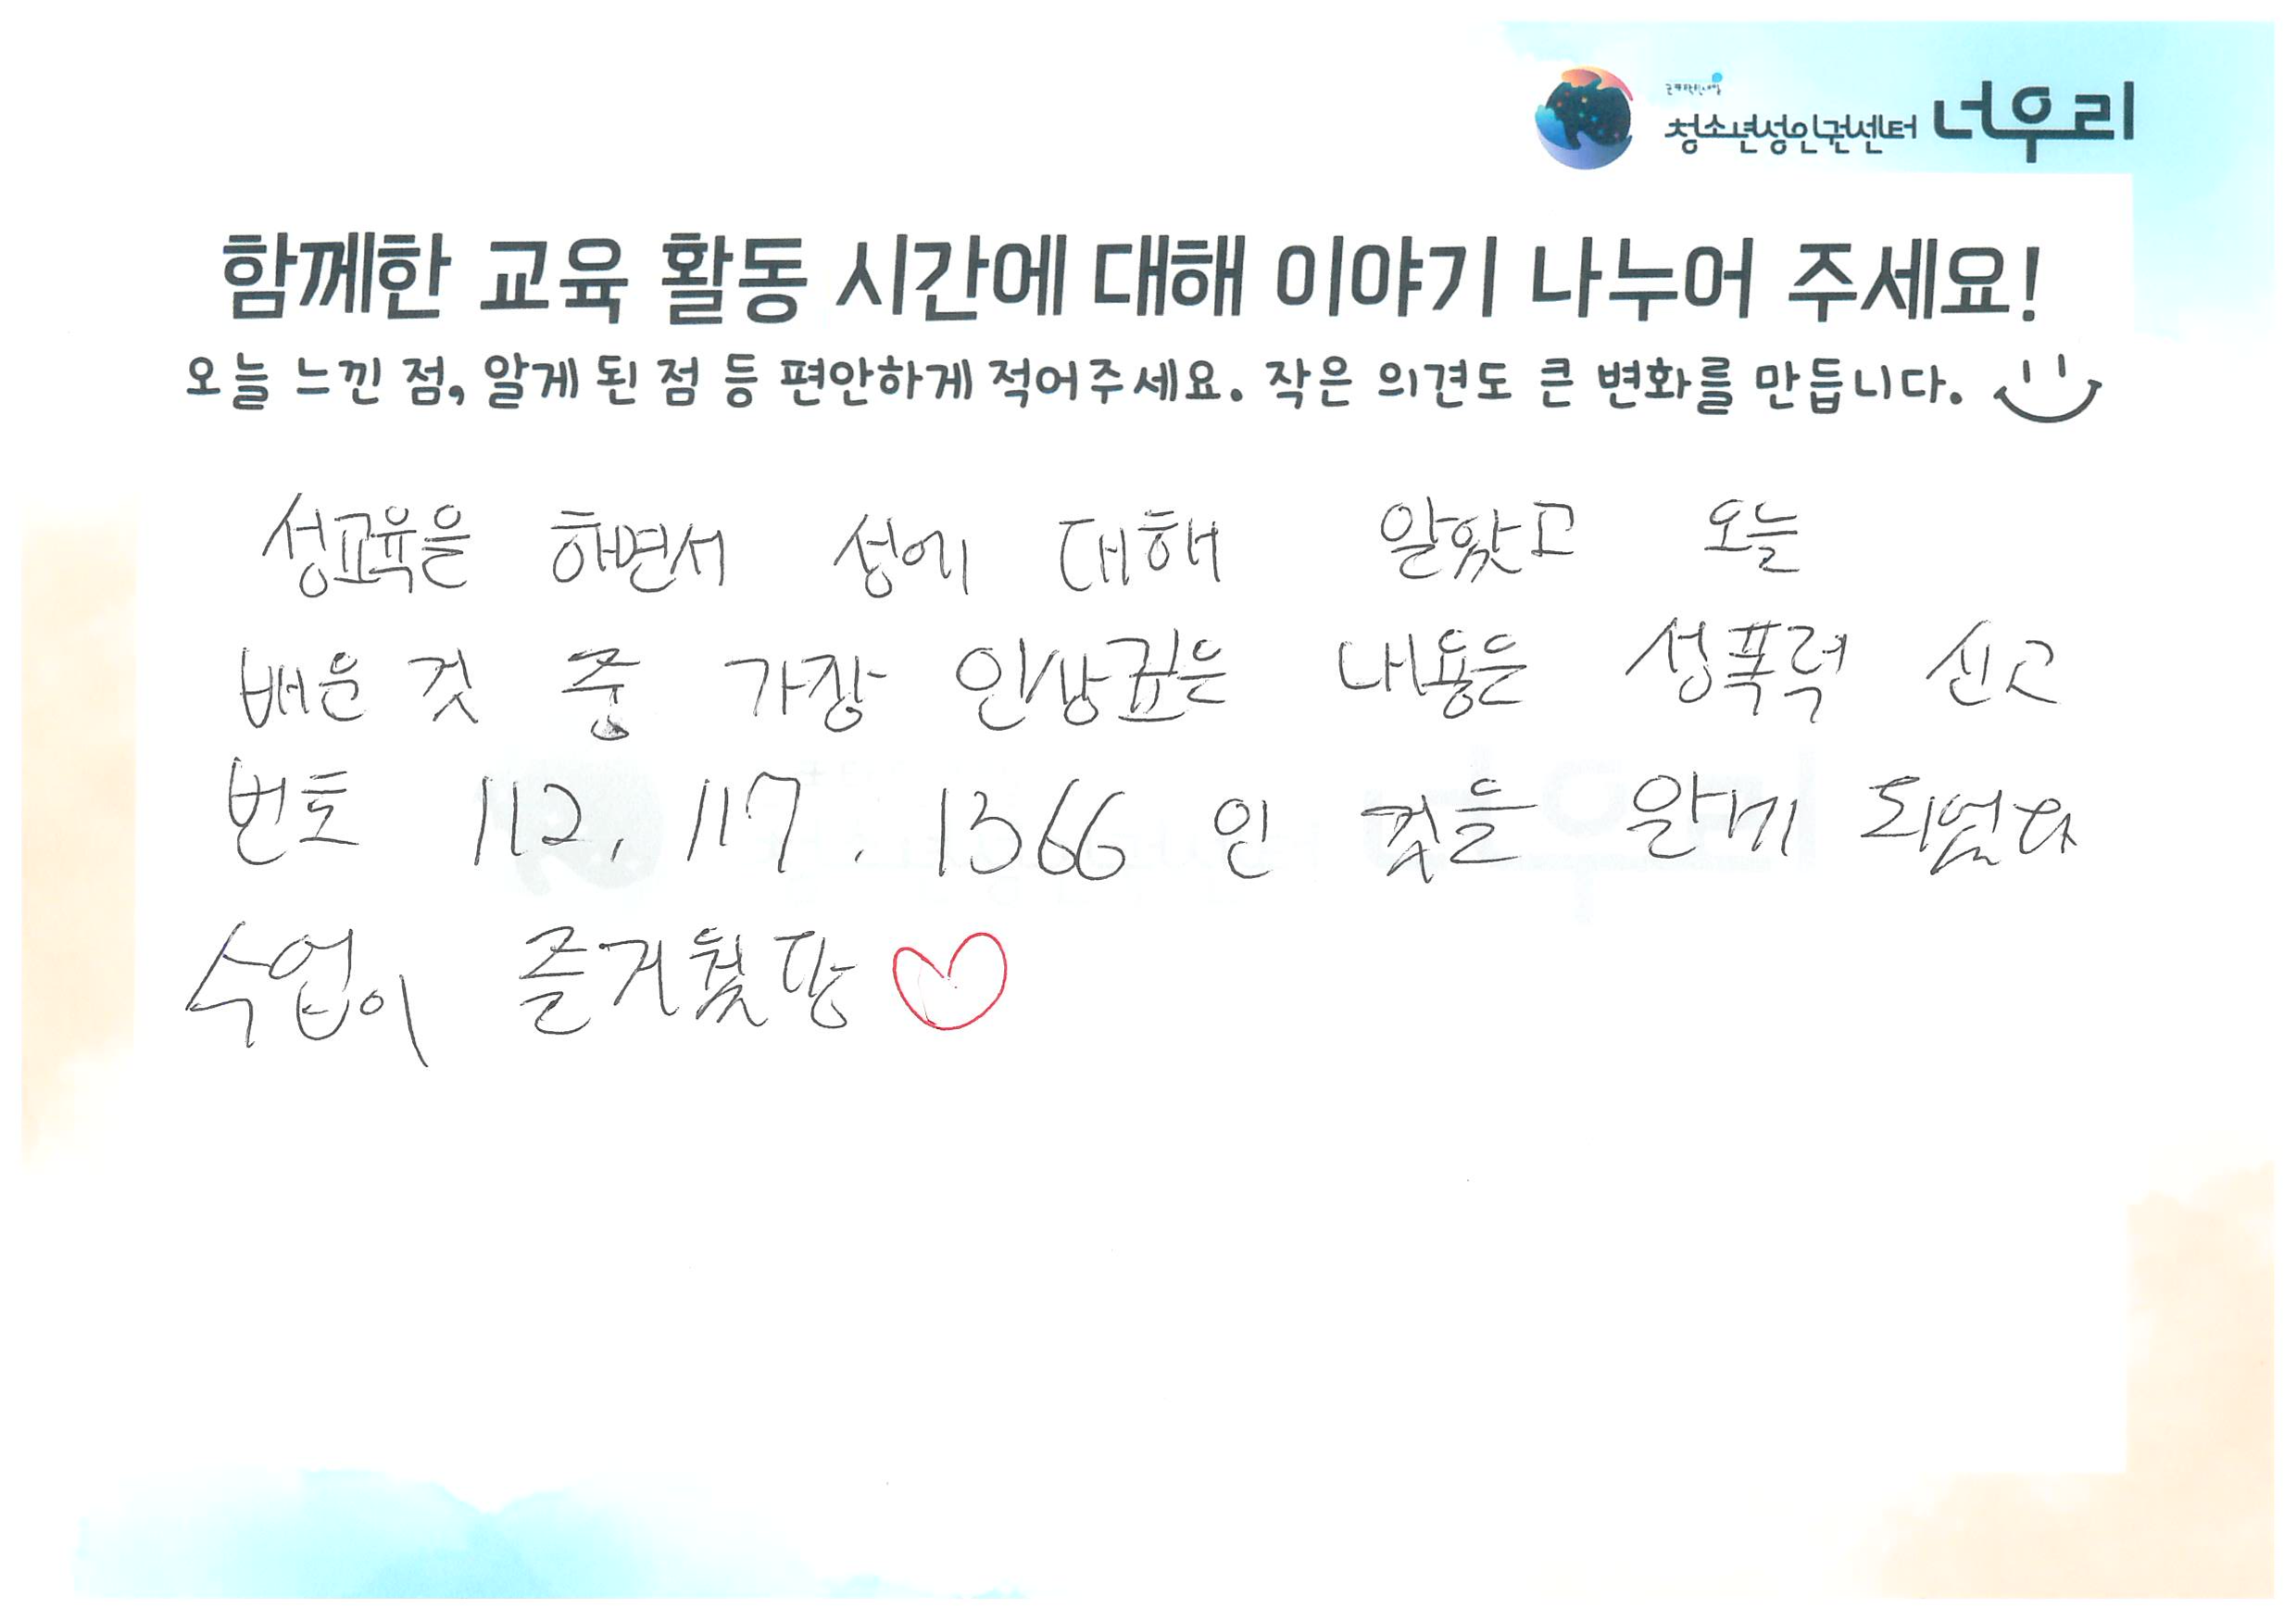 청소년성인권센터 너우리
함께한 교육 활동 시간에 대해 이야기 나누어 주세요!
오늘 느낀 점, 알게 된 점 등 편안하게 적어주세요. 작은 의견도 큰 변화를 만듭니다.
성교육을 하면서 성에 대해 알앗고 오늘
배운 것 중 가장 인상깊은 내용은 성폭력 신고
번호 112, 117, 1366 인 것을 알게 되었다
수업이 즐거웠당